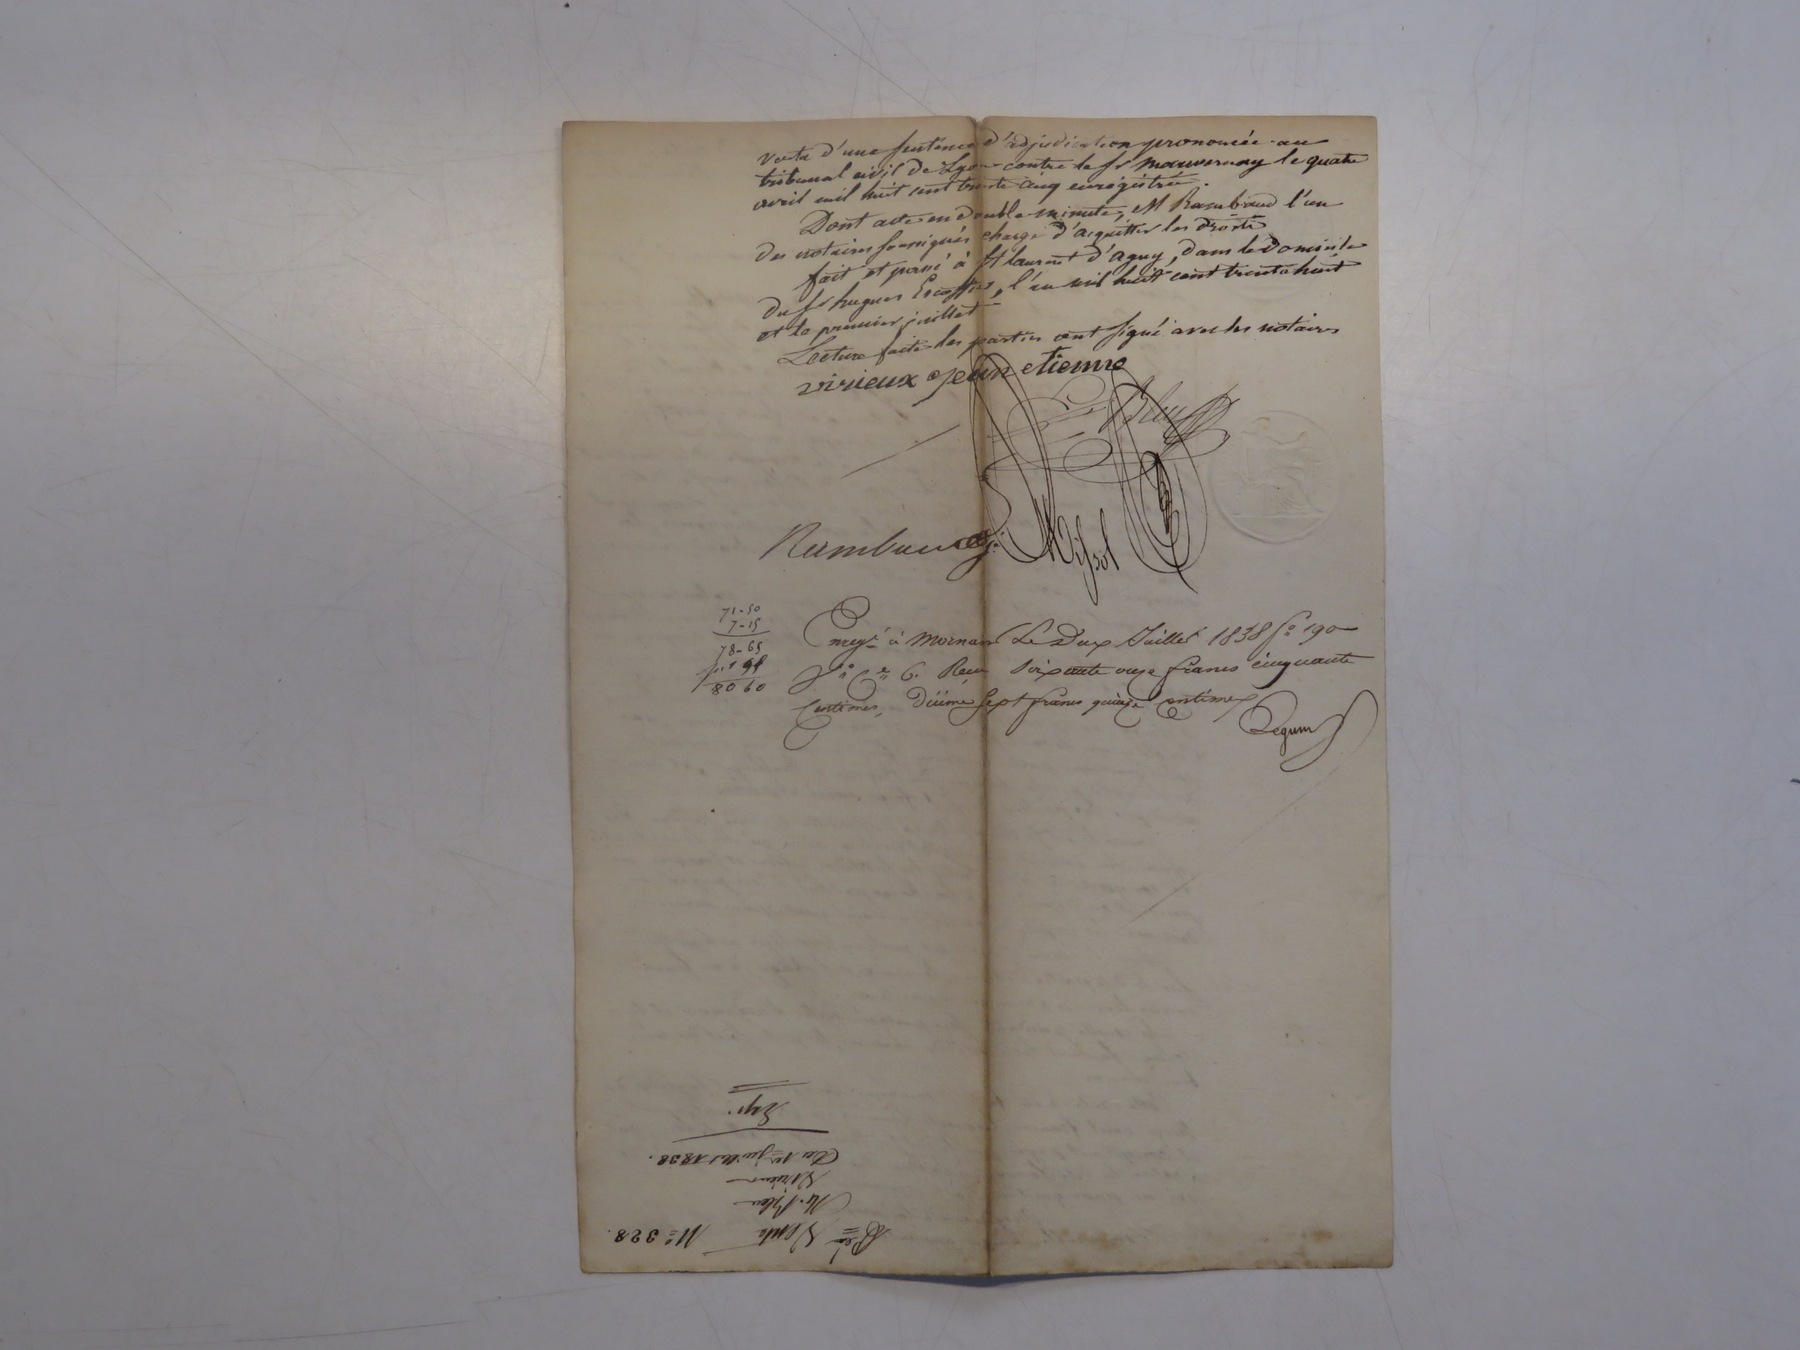 vertu d'une sentence d'adjudication prononcée au
tribunal civil de Lyon contre le sr Mauvernay le quatre
avril mil huit cent trente cinq enregistrée.
Dont acte en double minute, Me Rambaud l'un
des notaires soussignés chargé d'acquitter les droits
fait et passé à St laurent d'agny, dans le domicile
du sr hugues Escoffier, l'an mil huit cent trente huit
et le premier juillet
Lecture faite les parties ont signé avec les notaires
virieux jean etienne
Rambaud
71-50
7-15
78-65
1 95
80 60
Enregt à Mornant Le Deux Juillet 1838 fo 190
Ro Ce 6. Reçu soixante onze francs cinquante
Centimes, Dixième sept francs quinze centimes
No 328. Vente
Virieux
Du 1er juillet 1838.
Exp.